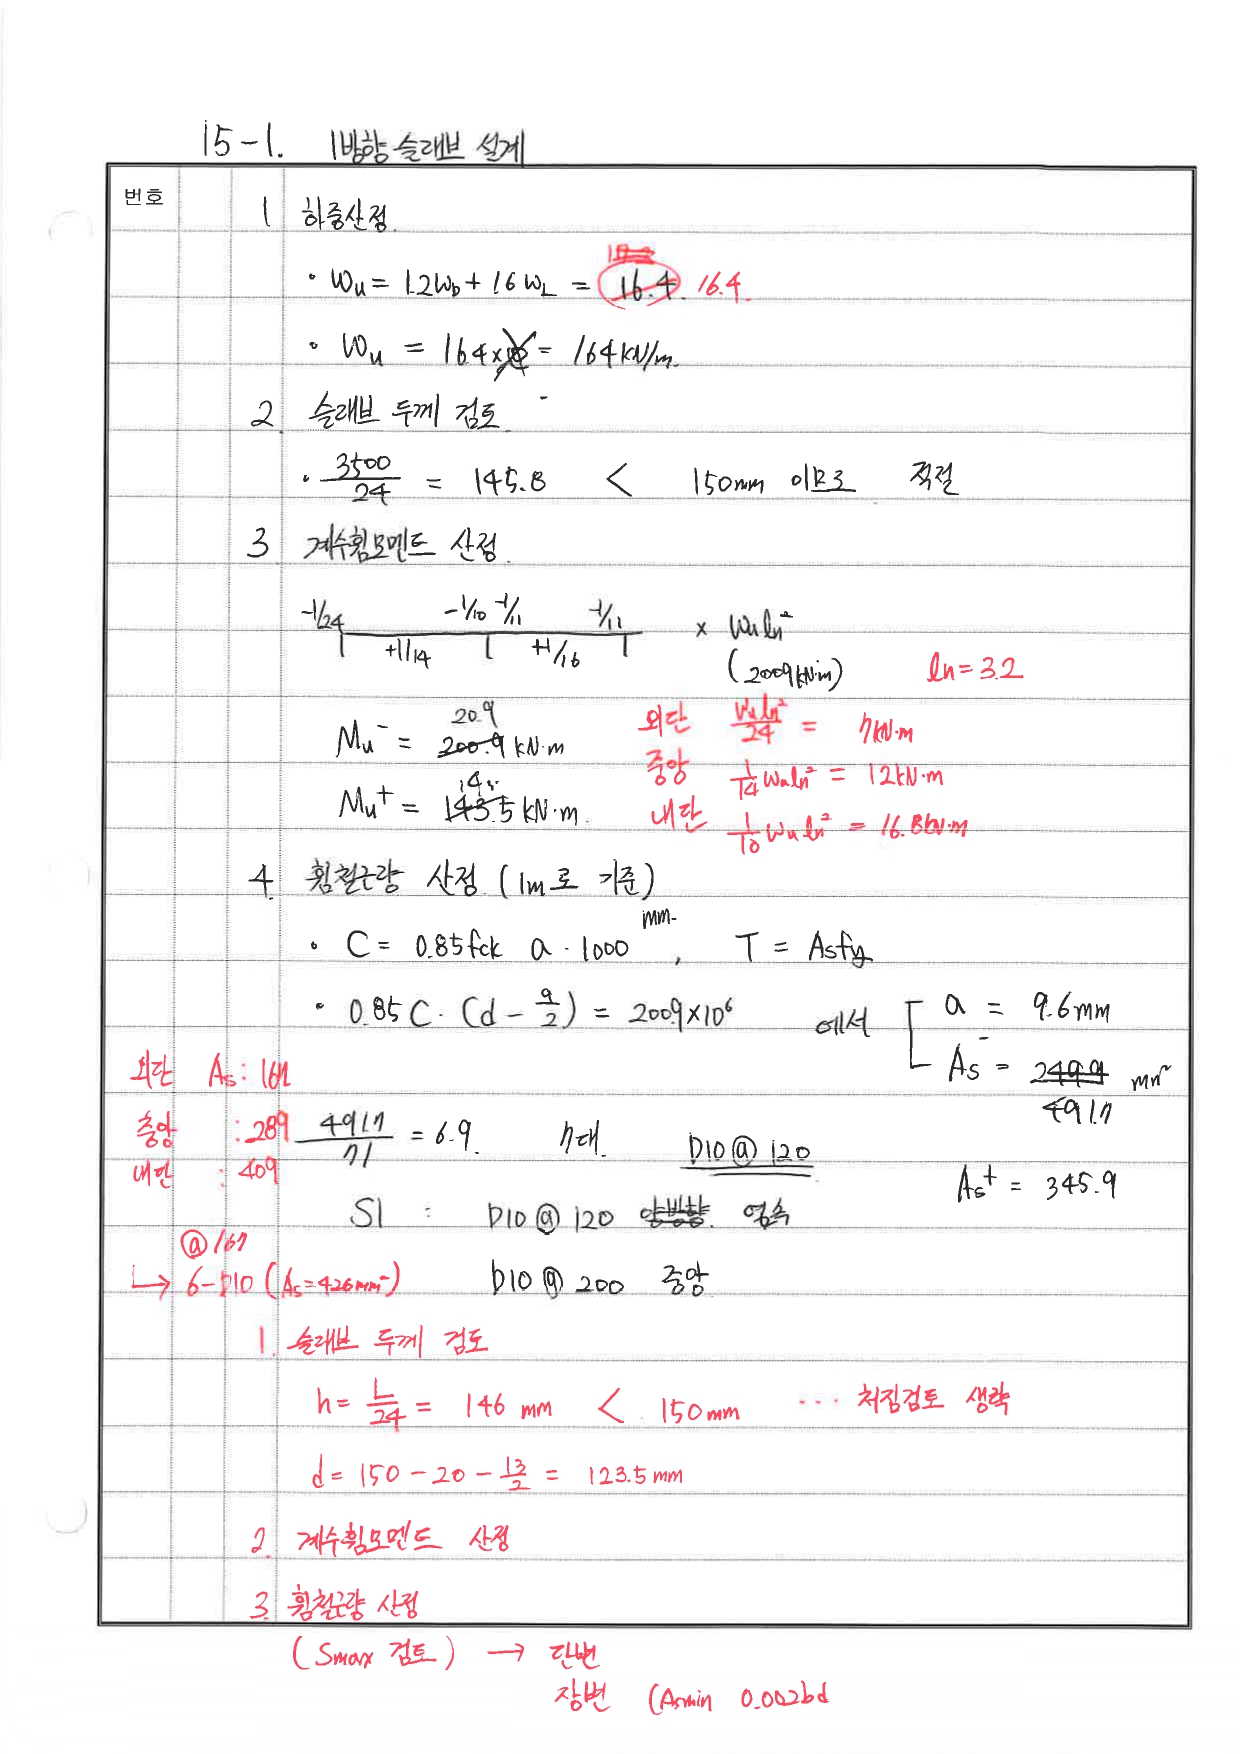 15-1. 1방향 슬래브 설계
번호
1 하중산정.
· Wu = 1.2WD + 1.6WL = 16.4. 16.4.
· Wu = 16.4 × = 16.4 kN/m.
2. 슬래브 두께 검토
· 3500/24 = 145.8 < 150mm 이므로 적절
3 계수휨모멘트 산정.
-1/24 -1/10 -1/11 -1/11 × Wu ln²
+1/14 +1/16 (200.9 kN·m) ln = 3.2
Mu⁻ = 200.9 20.9 kN·m 외단 Wu ln²/24 = 7kN·m
중앙 1/14 Wu ln² = 12kN·m
Mu⁺ = 143.5 14.. kN·m. 내단 1/10 Wu ln² = 16.8kN·m
4. 휨철근량 산정 (1m로 기준)
· C = 0.85fck a · 1000 mm, T = Asfy
· 0.85 C · (d - a/2) = 20.09×10⁶ 에서 a = 9.6mm
As⁻ = 249.9 491.7 mm²
외단 As : 167
중앙 : 289 491.7/71 = 6.9. 7대. D10@120
내단 : 409 As⁺ = 345.9
S1 : D10@120 양방향. 연속
@167
↳ 6-D10 (As=426mm²) D10@200 중앙
1. 슬래브 두께 검토
h = L/24 = 146 mm < 150mm ··· 처짐검토 생략
d = 150 - 20 - 13/2 = 123.5 mm
2. 계수휨모멘트 산정
3. 휨철근량 산정
(Smax 검토) → 단변
장변 (Asmin 0.002bd